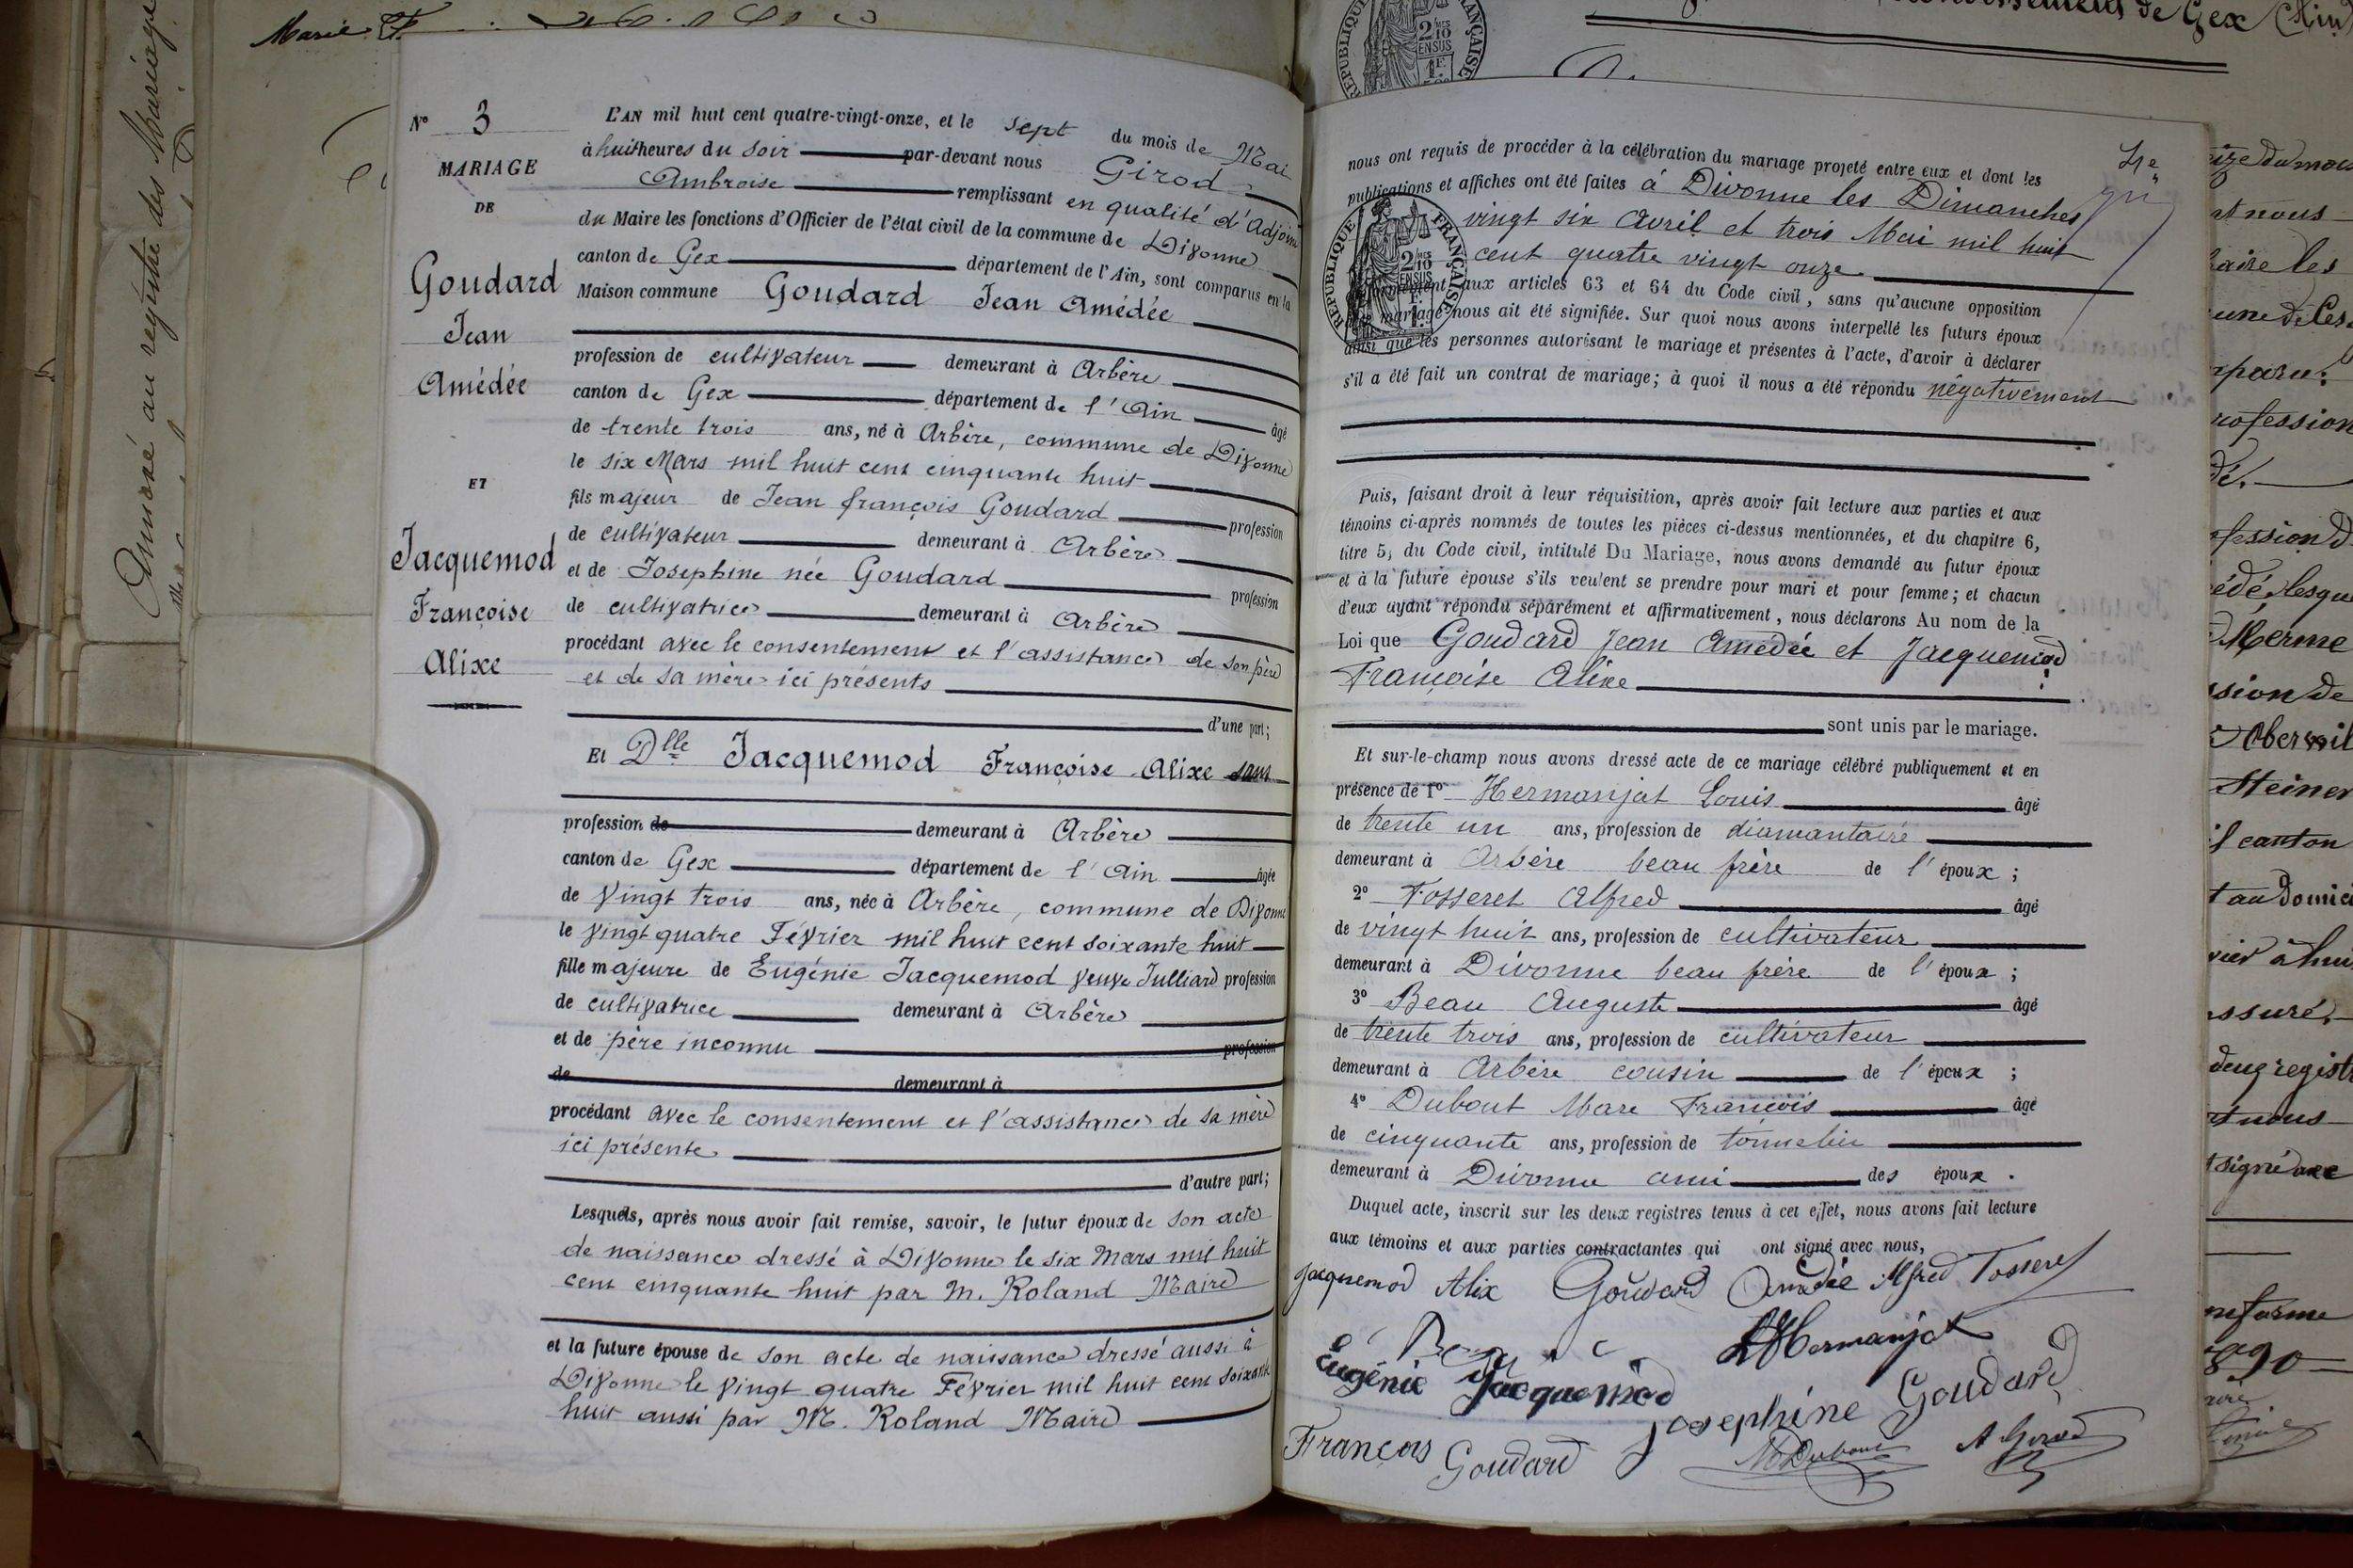 Annexé au registre des Mariages
Marie
N° 3
MARIAGE
DE
Goudard
Jean
Amédée
ET
Jacquemod
Françoise
Alixe
L'AN mil huit cent quatre-vingt-onze, et le sept du mois de Mai
à huit heures du soir par-devant nous Girod
Ambroise remplissant en qualité d'Adjoint
du Maire les fonctions d'Officier de l'état civil de la commune de Divonne
canton de Gex département de l'Ain, sont comparus en la
Maison commune Goudard Jean Amédée
profession de cultivateur demeurant à Arbère
canton de Gex département de l'Ain âgé
de trente trois ans, né à Arbère, commune de Divonne
le six Mars mil huit cent cinquante huit
fils majeur de Jean françois Goudard profession
de cultivateur demeurant à Arbère
et de Josephine née Goudard profession
de cultivatrice demeurant à Arbère
procédant avec le consentement et l'assistance de son père
et de sa mère ici présents
d'une part;
Et Dlle Jacquemod Françoise Alixe sans
profession de demeurant à Arbère
canton de Gex département de l'Ain âgée
de vingt trois ans, née à Arbère, commune de Divonne
le vingt quatre Février mil huit cent soixante huit
fille majeure de Eugénie Jacquemod veuve Julliard profession
de cultivatrice demeurant à Arbère
et de père inconnu profession
de demeurant à
procédant avec le consentement et l'assistance de sa mère
ici présente
d'autre part;
Lesquels, après nous avoir fait remise, savoir, le futur époux de son acte
de naissance dressé à Divonne le six Mars mil huit
cent cinquante huit par M. Roland Maire
et la future épouse de son acte de naissance dressé aussi à
Divonne le vingt quatre Février mil huit cent soixante
huit aussi par M. Roland Maire
nous ont requis de procéder à la célébration du mariage projeté entre eux et dont les
publications et affiches ont été faites à Divonne les Dimanches
vingt six Avril et trois Mai mil huit
cent quatre vingt onze
aux articles 63 et 64 du Code civil, sans qu'aucune opposition
mariage nous ait été signifiée. Sur quoi nous avons interpellé les futurs époux
ainsi que les personnes autorisant le mariage et présentes à l'acte, d'avoir à déclarer
s'il a été fait un contrat de mariage; à quoi il nous a été répondu négativement
Puis, faisant droit à leur réquisition, après avoir fait lecture aux parties et aux
témoins ci-après nommés de toutes les pièces ci-dessus mentionnées, et du chapitre 6,
titre 5, du Code civil, intitulé Du Mariage, nous avons demandé au futur époux
et à la future épouse s'ils veulent se prendre pour mari et pour femme; et chacun
d'eux ayant répondu séparément et affirmativement, nous déclarons Au nom de la
Loi que Goudard Jean Amédée et Jacquemod
Françoise Alixe
sont unis par le mariage.
Et sur-le-champ nous avons dressé acte de ce mariage célébré publiquement et en
présence de 1° Hermanjat Louis âgé
de trente un ans, profession de diamantaire
demeurant à Arbère beau frère de l'époux;
2° Fosseret Alfred âgé
de vingt huit ans, profession de cultivateur
demeurant à Divonne beau frère de l'époux;
3° Beau Auguste âgé
de trente trois ans, profession de cultivateur
demeurant à Arbère cousin de l'époux;
4° Dubout Marc François âgé
de cinquante ans, profession de tonnelier
demeurant à Divonne ami des époux.
Duquel acte, inscrit sur les deux registres tenus à cet effet, nous avons fait lecture
aux témoins et aux parties contractantes qui ont signé avec nous,
Jacquemod Alix Goudard Amédée Alfred Fosseret
LHermanjat
Eugénie Jacquemod Josephine Goudard
François Goudard MDubout AGirod
RÉPUBLIQUE FRANÇAISE
de Gex (Ain)